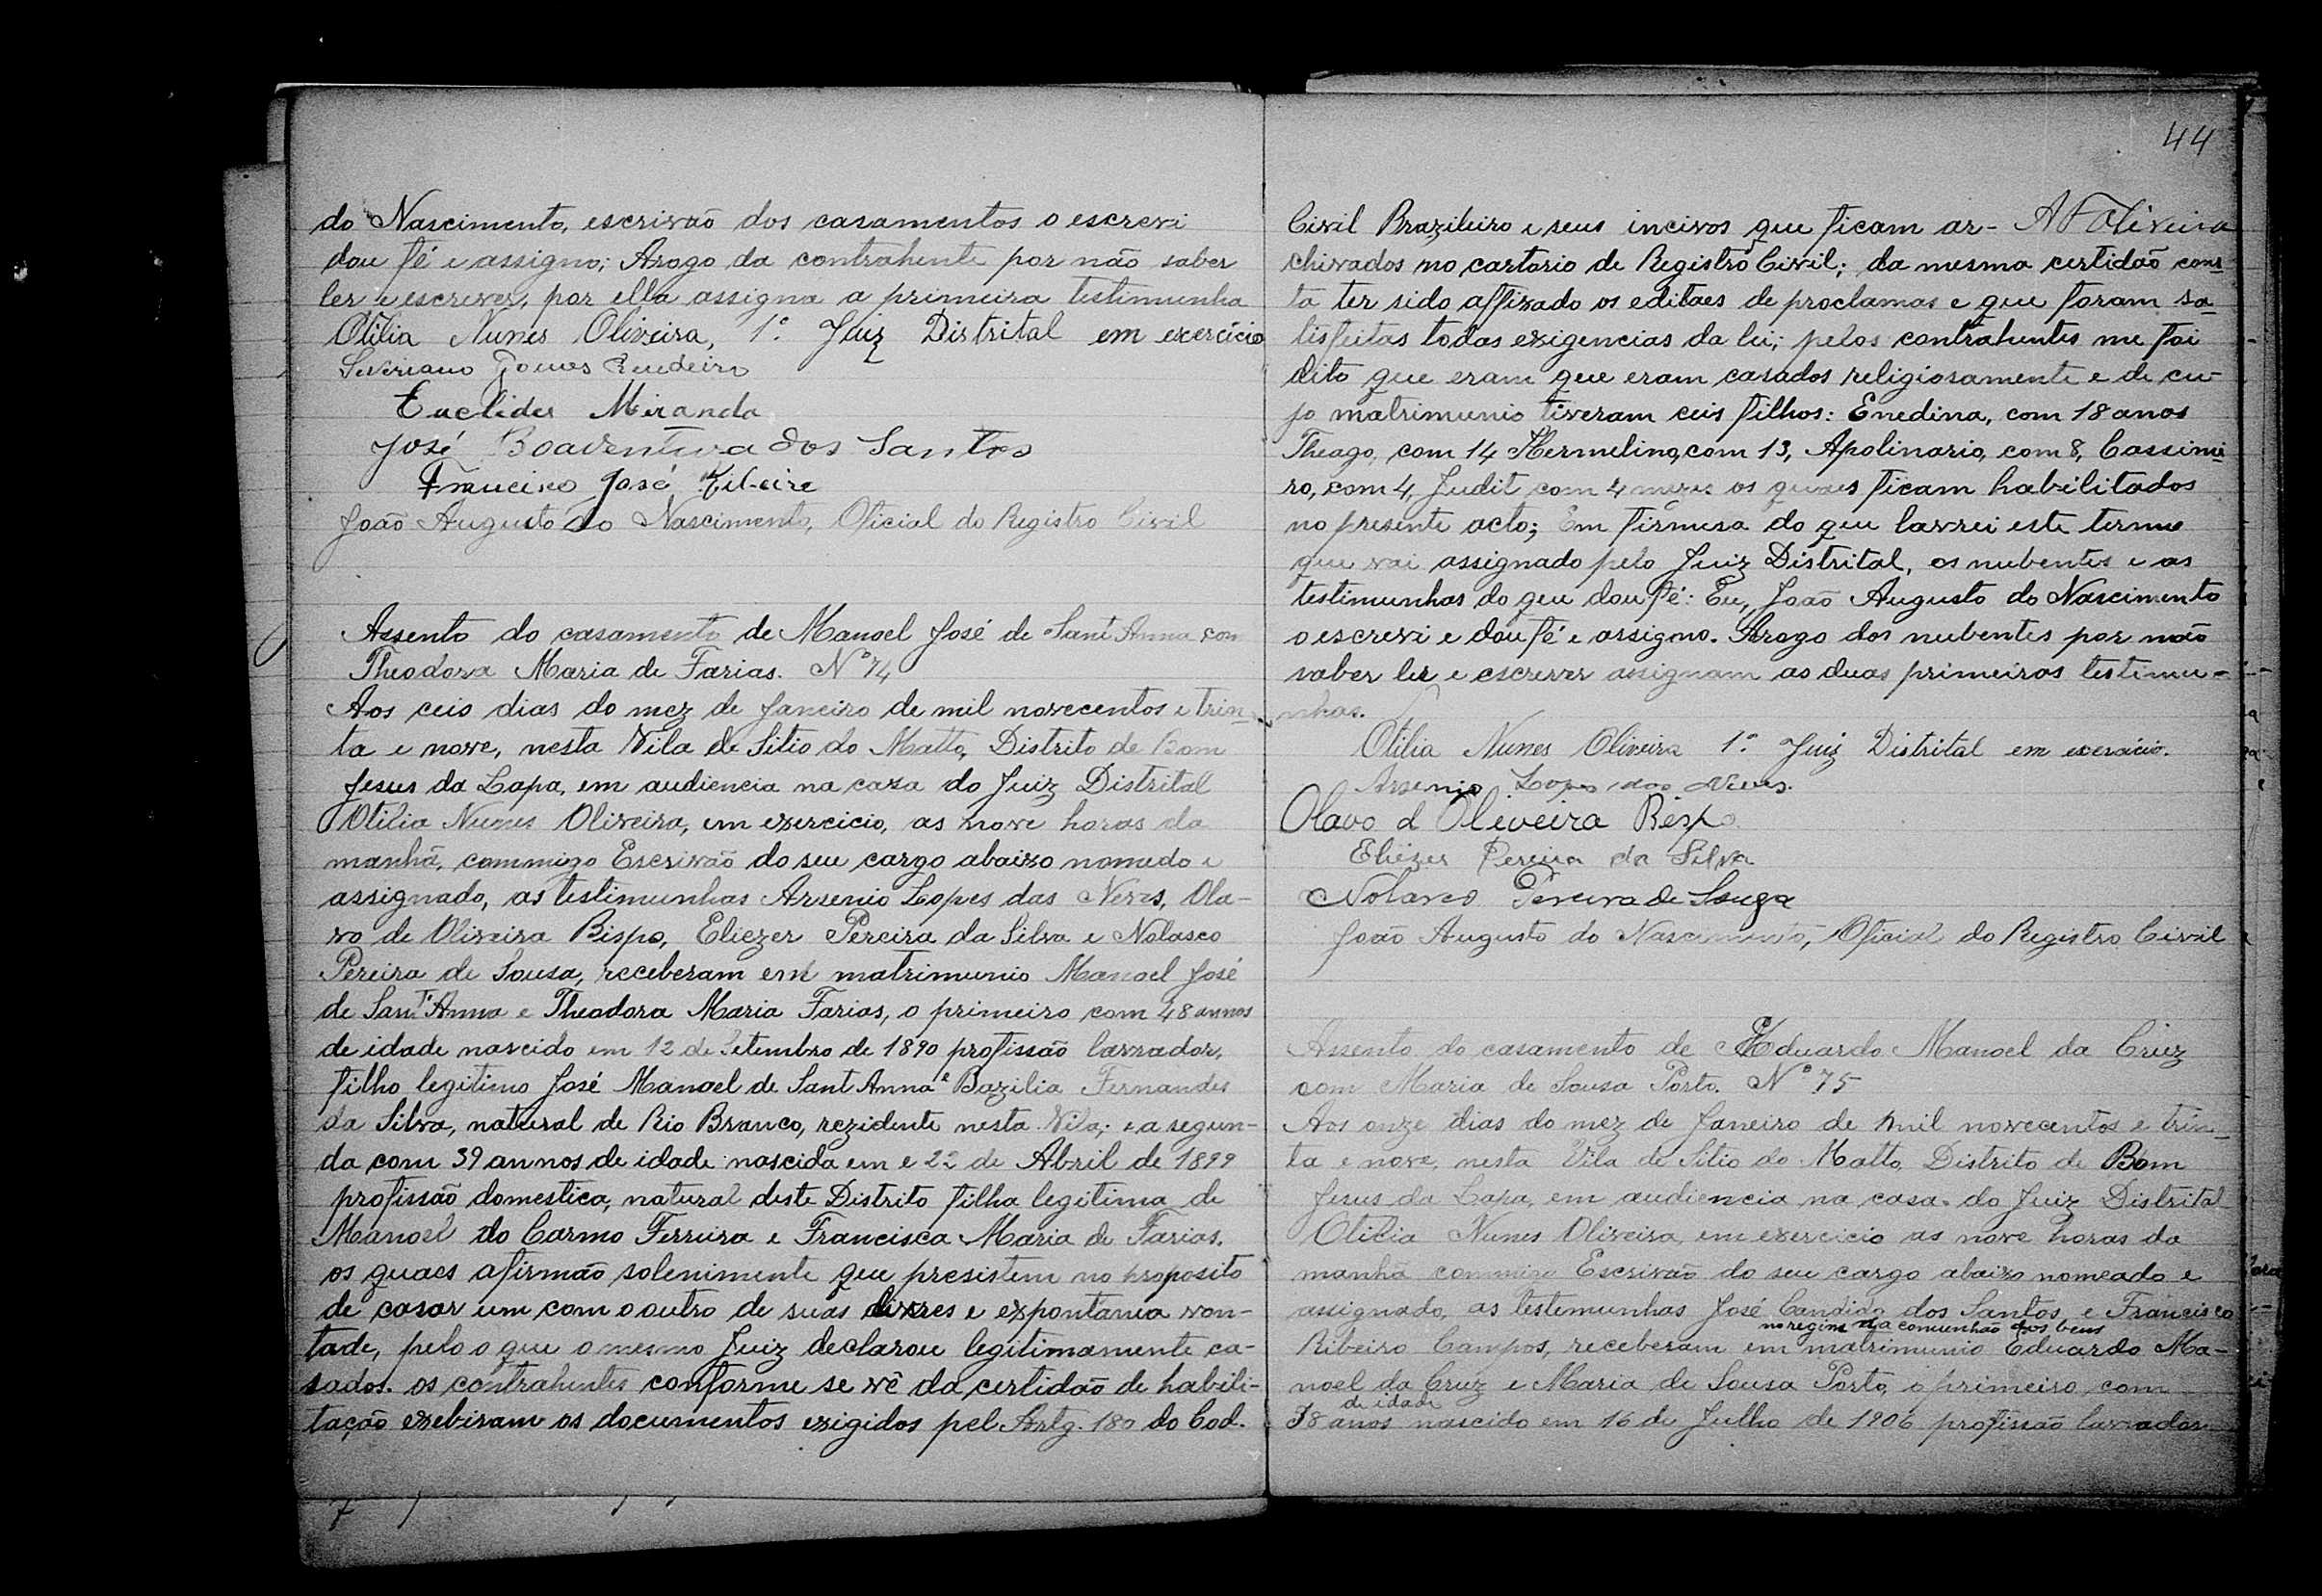 do Nascimento, escrivão dos casamentos o escrevi
dou fé e assigno; Arogo da contrahente por não saber
ler e escrever, por ella assigna a primeira testimunha
Otilia Nunes Oliveira, 1º Juiz Distrital em exercício
Severiano Gomes Rendeiro
Euclides Miranda
José Boaventura dos Santos
Francisco José Ribeiro
João Augusto do Nascimento, Oficial do Registro Civil
Assento do casamento de Manoel José de Sant Anna com
Theodora Maria de Farias. Nº 74
Aos ceis dias do mez de Janeiro de mil novecentos e trin-
ta e nove, nesta Vila de Sitio do Matto, Distrito de Bom
Jesus da Lapa, em audiencia na casa do Juiz Distrital
Otilia Nunes Oliveira, em exercicio, as nove horas da
manhã, commigo Escrivão do seu cargo abaixo nomedo e
assignado, as testimunhas Arsenio Lopes das Neves, Ola-
vo de Oliveira Bispo, Eliezer Pereira da Silva e Nolasco
Pereira de Sousa, receberam em matrimunio Manoel José
de Sant'Anna e Theodora Maria Farias, o primeiro com 48 annos
de idade nascido em 12 de Setembro de 1890 profissão lavrador,
filho legitimo José Manoel de Sant Anna e Bazilia Fernandes
da Silva, natural de Rio Branco, rezidente nesta Vila; e a segun-
da com 39 annos de idade nascida em e 22 de Abril de 1899
profissão domestica, natural deste Distrito filha legitima de
Manoel do Carmo Ferreira e Francisca Maria de Farias.
os quaes afirmão solenimente que presistem no proposito
de casar um com o outro de suas livres e expontania von-
tade, pelo o que o mesmo Juiz declarou legitimamente ca-
sados. os contrahentes conforme se vê da certidão de habili-
tação exebiram os documentos exigidos pel Artg. 180 do Cod.
44
Civil Brazileiro e seus incivos que ficam ar- A F Oliveira
chivados no cartorio de Registro Civil; da mesma certidão cons-
ta ter sido affixado os editaes de proclamas e que foram sa-
tisfeitas todas exigencias da lei; pelos contrahentes me foi
dito que eram que eram casados religiosamente e de cu-
jo matrimunio tiveram ceis filhos: Enedina, com 18 anos
Theago, com 14 Hermelino, com 13, Apolinario, com 8, Cassimi-
ro, com 4, Judit com 4 mezes os quaes ficam habilitados
no presente acto; Em firmesa do que lavrei este termo
que vai assignado pelo Juiz Distrital, os nubentes e as
testimunhas do que dou fé: Eu, João Augusto do Nascimento
o escrevi e dou fé e assigno. Arogo dos nubentes por não
saber ler e escrever assignam as duas primeiras testimu-
nhas.
Otilia Nunes Oliveira 1º Juiz Distrital em exercício.
Arsenio Lopes das Neves.
Olavo d Oliveira Bispo
Eliézer Pereira da Silva
Nolasco Pereira de Souza
João Augusto do Nascimento, Oficial do Registro Civil
Assento do casamento de Eduardo Manoel da Cruz
com Maria de Sousa Porto. Nº 75
Aos onze dias do mez de Janeiro de mil novecentos e trin-
ta e nove, nesta Vila de Sitio do Matto, Distrito de Bom
Jesus da Lapa, em audiencia na casa do Juiz Distrital
Otilia Nunes Oliveira, em exercicio as nove horas da
manhã commigo Escrivão do seu cargo abaixo nomeado e
assignado, as testemunhas José Candido dos Santos e Francisco
no regime da comunhão dos bens
Ribeiro Campos, receberam em matrimunio Eduardo Ma-
noel da Cruz e Maria de Sousa Porto, o primeiro com
de idade
38 anos nascido em 16 de Julho de 1906 profissão lavrador